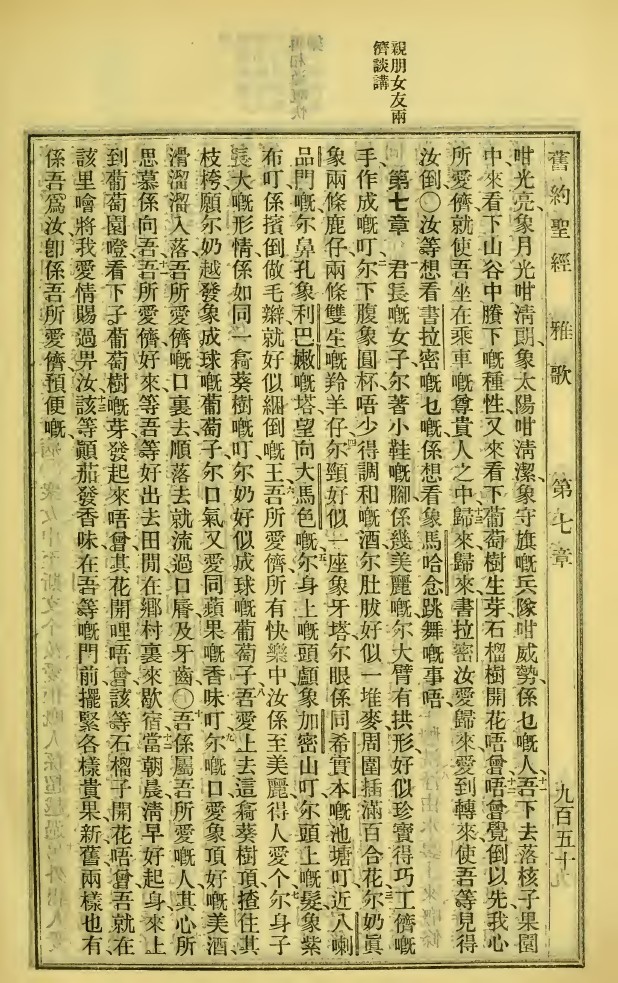 舊約聖經 雅歌 第七章 九百五十九
親朋女友兩
儕談講
咁光亮象月光咁清朗象太陽咁清潔象守旗嘅兵隊咁威勢係乜嘅人吾下去落核子果園
中來看下山谷中賸下嘅種性又來看下葡萄樹生芽石榴樹開花唔曾唔曾覺倒以先我心
所愛儕就使吾坐在乘車嘅尊貴人之中歸來歸來書拉密汝愛歸來愛到轉來使吾等見得
汝倒〇汝等想看書拉密嘅乜嘅係想看象馬哈念跳舞嘅事唔
第七章 君長嘅女子尔著小鞋嘅腳係幾美麗嘅尔大臂有拱形好似珍寶得巧工儕嘅
手作成嘅叮尔下腹象圓杯唔少得調和嘅酒尔肚胈好似一堆麥周圍插滿百合花尔奶眞
象兩條鹿仔兩條雙生嘅羚羊仔尔頸好似一座象牙塔尔眼係同希實本嘅池塘叮近八喇
品門嘅尔鼻孔象利巴嫩嘅塔望向大馬色嘅尔身上嘅頭顱象加密山叮尔頭上嘅髮象紫
布叮係擯倒做毛辮就好似綑倒嘅王吾所愛儕所有快樂中汝係至美麗得人愛个尔身子
長大嘅形情係如同一喬葵樹嘅叮尔奶好似成球嘅葡萄子吾愛上去這喬葵樹頂揸住其
枝椦願尔奶越發象成球嘅葡萄子尔口氣又愛同蘋果嘅香味叮尔嘅口愛象頂好嘅美酒
滑溜溜入落吾所愛儕嘅口裏去順落去就流過口脣及牙齒〇吾係屬吾所愛嘅人其心所
思慕係向吾吾所愛儕好來等吾等好出去田閒在鄉村裏來歇宿當朝晨淸早好起身來上
到葡萄園噔看下子葡萄樹嘅芽發起來唔曾其花開哩唔曾該等石榴子開花唔曾吾就在
該里噲將我愛情賜過畀汝該等顚茄發香味在吾等嘅門前擺緊各樣貴果新舊兩樣也有
係吾爲汝卽係吾所愛儕預便嘅